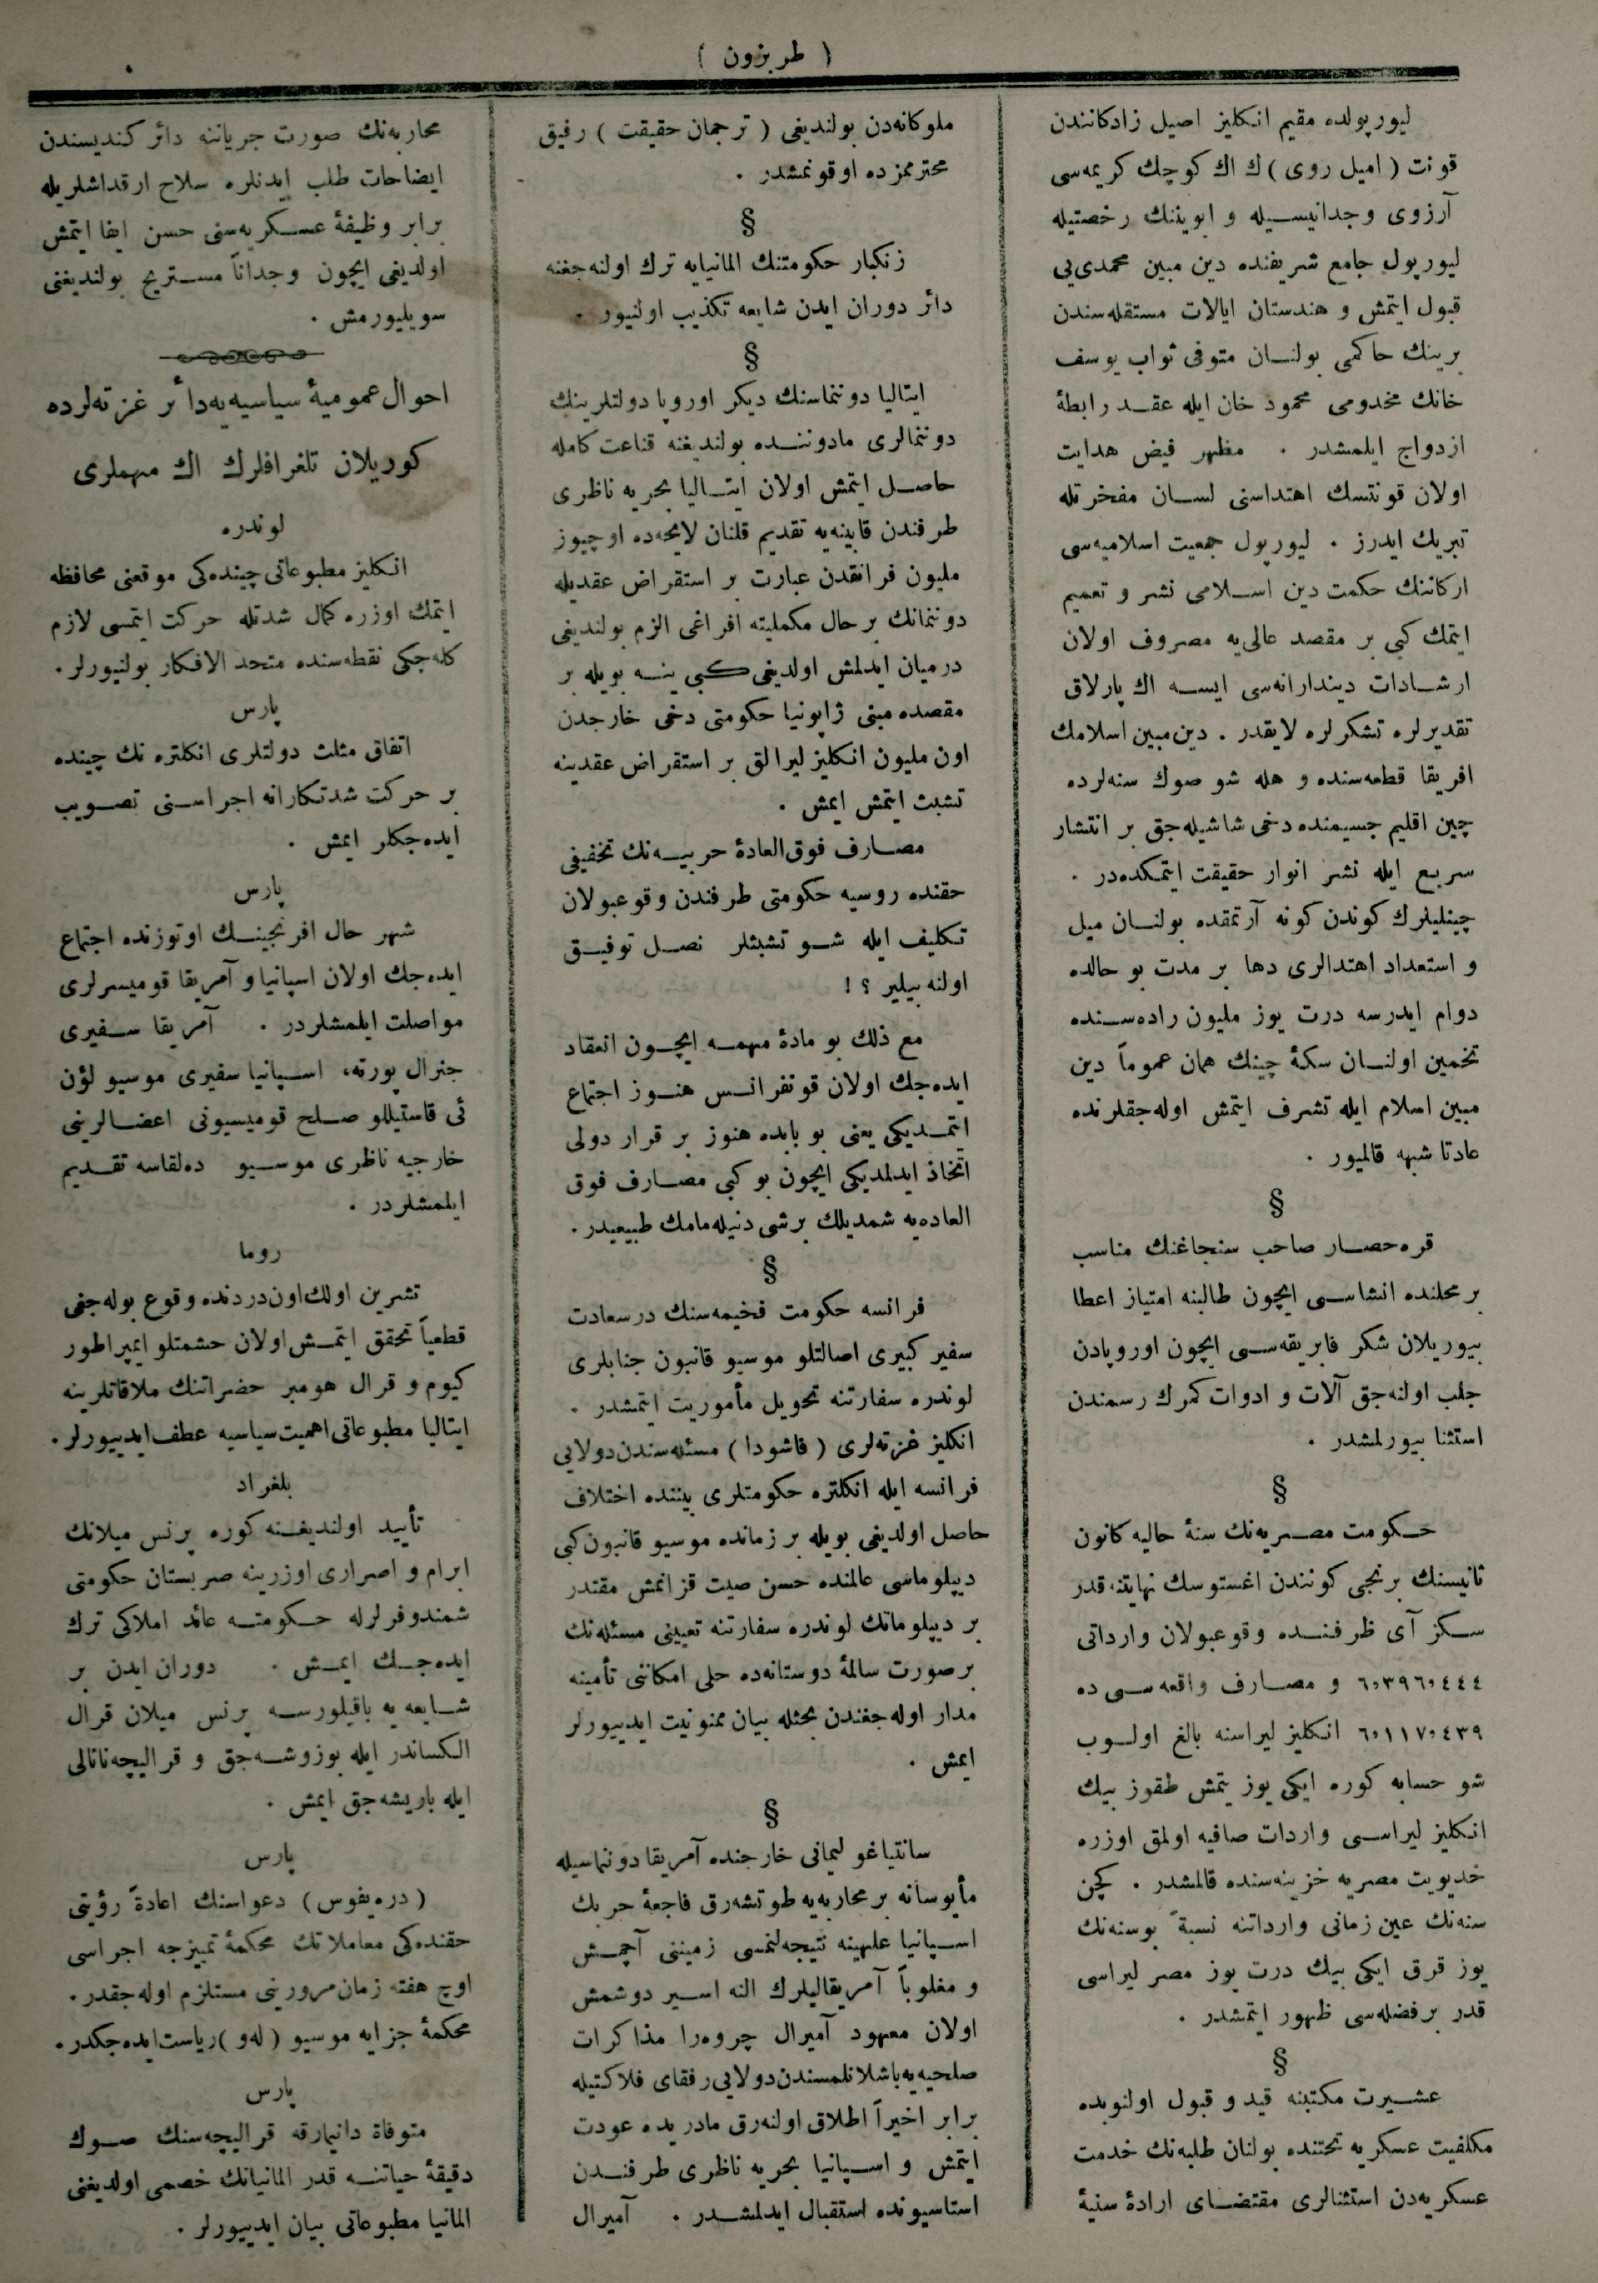 ( طربزون )
ليورپولده مقيم انكليز اصيل زادكانندن
قونت ( اميل روی ) ك اك كوچك كريمه‌سی
آرزوی وجدانيسيله و ابويننك رخصتيله
ليورپول جامع شريفنده دين مبين محمدی‌يی
قبول ايتمش و هندستان ايالات مستقله‌سندن
برينك حاكمی بولنان متوفی نواب يوسف
خانك مخدومی محمود خان ايله عقد رابطهٔ
ازدواج ايلمشدر . مظهر فيض هدايت
اولان قونتسك اهتداسنی لسان مفخرتله
تبريك ايدرز . ليورپول جمعيت اسلاميه‌سی
اركاننك حكمت دين اسلامی نشر و تعميم
ايتمك كبی بر مقصد عالی‌يه مصروف اولان
ارشادات دیندارانه‌سی ايسه اك پارلاق
تقديرلره تشكرلره لايقدر . دين مبين اسلامك
افريقا قطعه‌سنده و هله شو صوك سنه‌لرده
چين اقليم جسيمنده دخی شاشيله‌جق بر انتشار
سريع ايله نشر انوار حقيقت ايتمكده‌در .
چينليلرك كوندن كونه آرتمقده بولنان ميل
و استعداد اهتدالری دها بر مدت بو حالده
دوام ايدرسه درت يوز مليون راده‌سنده
تخمين اولنان سكنهٔ چينك همان عموماً دين
مبين اسلام ايله تشرف ايتمش اوله‌جقلرنده
عادتا شبهه قالميور .
§
قره‌حصار صاحب سنجاغنك مناسب
بر محلنده انشاسی ايچون طالبنه امتياز اعطا
بيوريلان شكر فابريقه‌سی ايچون اوروپادن
جلب اولنه‌جق آلات و ادوات كمرك رسمندن
استثنا بيورلمشدر .
§
حكومت مصريه‌نك سنهٔ حاليه كانون
ثانيسنك برنجی كونندن اغستوسك نهايتنه قدر
سكز آی ظرفنده وقوعبولان وارداتی
٦،٣٩٦،٤٤٤ و مصارف واقعه‌سی ده
٦،١١٧،٤٣٩ انكليز ليراسنه بالغ اولوب
شو حسابه كوره ايكی يوز يتمش طقوز بيك
انكليز ليراسی واردات صافيه اولمق اوزره
خديويت مصريه خزينه‌سنده قالمشدر . كچن
سنه‌نك عين زمانی وارداتنه نسبةً بوسنه‌نك
يوز قرق ايكی بيك درت يوز مصر ليراسی
قدر بر فضله‌سی ظهور ايتمشدر .
§
عشيرت مكتبنه قيد و قبول اولنوبده
مكلفيت عسكريه تحتنده بولنان طلبه‌نك خدمت
عسكريه‌دن استثنالری مقتضای ارادهٔ سنيهٔ
ملوكانه‌دن بولنديغی ( ترجمان حقيقت ) رفيق
محترممزده اوقونمشدر .
§
زنكبار حكومتنك المانيايه ترك اولنه‌جغنه
دائر دوران ايدن شايعه تكذيب اولنيور .
§
ايتاليا دوننماسنك ديكر اوروپا دولتلرينك
دوننمالری مادوننده بولنديغنه قناعت كامله
حاصل ايتمش اولان ايتاليا بحريه ناظری
طرفندن قابينه‌يه تقديم قلنان لايحه‌ده اوچيوز
مليون فرانقدن عبارت بر استقراض عقديله
دوننمانك بر حال مكمليته افراغی الزم بولنديغی
درميان ايدلمش اولديغی كبی ينه بويله بر
مقصده مبنی ژاپونيا حكومتی دخی خارجدن
اون مليون انكليز ليرالق بر استقراض عقدينه
تشبث ايتمش ايمش .
مصارف فوق‌العادهٔ حربيه‌نك تخفيفی
حقنده روسيه حكومتی طرفندن وقوعبولان
تكليف ايله شو تشبثلر نصل توفيق
اولنه‌بيلير ؟ !
مع ذلك بو مادهٔ مهمه ايچون انعقاد
ايده‌جك اولان قونفرانس هنوز اجتماع
ايتمديكی يعنی بو بابده هنوز بر قرار دولی
اتخاذ ايدلمديكی ايچون بو كبی مصارف فوق
العاده‌يه شمديلك برشی دنيله‌مامك طبيعيدر .
§
فرانسه حكومت فخيمه‌سنك درسعادت
سفير كبيری اصالتلو موسيو قانبون جنابلری
لوندره سفارتنه تحويل مأموريت ايتمشدر .
انكليز غزته‌لری ( فاشودا ) مسئله‌سندن دولايی
فرانسه ايله انكلتره حكومتلری بيننده اختلاف
حاصل اولديغی بويله بر زمانده موسيو قانبون كبی
ديپلوماسی عالمنده حسن صيت قزانمش مقتدر
بر ديپلوماتك لوندره سفارتنه تعيينی مسئله‌نك
بر صورت سالمهٔ دوستانه‌ده حلی امكاننی تأمينه
مدار اوله‌جغندن بحثله بيان ممنونيت ايدييورلر
ايمش .
§
سانتياغو ليمانی خارجنده آمريقا دوننماسيله
مأيوسانه بر محاربه‌يه طوتشه‌رق فاجعهٔ حربك
اسپانيا عليهينه نتيجه‌لنمسی زميننی آچمش
و مغلوباً آمريقاليلرك النه اسير دوشمش
اولان معهود آميرال چروه‌را مذاكرات
صلحيه‌يه باشلانلمسندن دولايی رفقای فلاكتيله
برابر اخيراً اطلاق اولنه‌رق مادريده عودت
ايتمش و اسپانيا بحريه ناظری طرفندن
استاسيونده استقبال ايدلمشدر . آميرال
محاربه‌نك صورت جرياننه دائر كنديسندن
ايضاحات طلب ايدنلره سلاح ارقداشلريله
برابر وظيفهٔ عسكريه‌سنی حسن ايفا ايتمش
اولديغی ايچون وجداناً مستريح بولنديغنی
سويليورمش .
احوال عموميهٔ سياسيه‌يه‌دائر غزته‌لرده
كوريلان تلغرافلرك اك مهملری
لوندره
انكليز مطبوعاتی چينده‌كی موقعنی محافظه
ايتمك اوزره كمال شدتله حركت ايتمسی لازم
كله‌جكی نقطه‌سنده متحد الافكار بولنيورلر .
پارس
اتفاق مثلث دولتلری انكلتره نك چينده
بر حركت شدتكارانه اجراسنی تصويب
ايده‌جكلر ايمش .
پارس
شهر حال افرنجينك اوتوزنده اجتماع
ايده‌جك اولان اسپانيا و آمريقا قوميسرلری
مواصلت ايلمشلردر . آمريقا سفيری
جنرال پورته، اسپانيا سفيری موسيو لؤن
ئی قاستيللو صلح قوميسيونی اعضالرينی
خارجيه ناظری موسيو ده‌لقاسه تقديم
ايلمشلردر .
روما
تشرين اولك اون‌دردنده وقوع بوله‌جغی
قطعياً تحقق ايتمش اولان حشمتلو ايمپراطور
كيوم و قرال هومبر حضراتنك ملاقاتلرينه
ايتاليا مطبوعاتی اهميت سياسيه عطف ايدييورلر .
بلغراد
تأييد اولنديغنه كوره پرنس ميلانك
ابرام و اصراری اوزرينه صربستان حكومتی
شمندوفرلرله حكومته عائد املاكی ترك
ايده‌جك ايمش . دوران ايدن بر
شايعه‌يه باقيلورسه پرنس ميلان قرال
الكساندر ايله بوزوشه‌جق و قراليچه‌ناتالی
ايله باريشه‌جق ايمش .
پارس
( دره‌يفوس ) دعواسنك اعادةً رؤيتی
حقنده‌كی معاملاتك محكمهٔ تمييزجه اجراسی
اوچ هفته زمان مرورينی مستلزم اوله‌جقدر .
محكمهٔ جزايه موسيو ( له‌و ) رياست ايده‌جكدر .
پارس
متوفاة دانيمارقه قراليچه‌سنك صوك
دقيقهٔ حياتنه قدر المانيانك خصمی اولديغنی
المانيا مطبوعاتی بيان ايدييورلر .